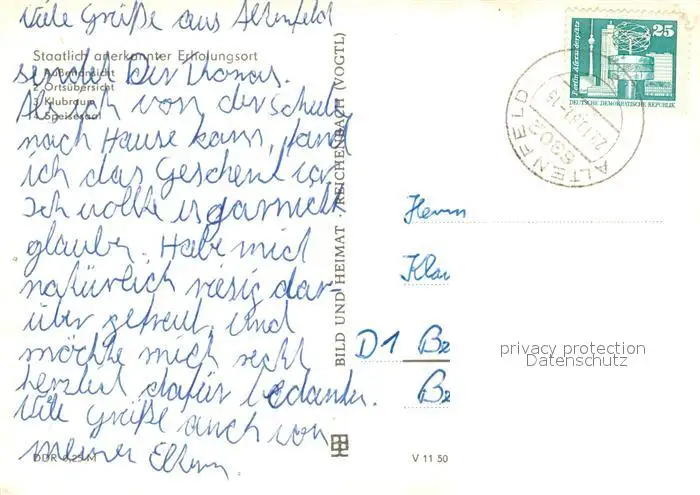 Viele Grüße aus Altenfeld
Staatlich anerkannter Erholungsort
sendet Dir Thomas.
1 Außenansicht
2 Ortsübersicht
Als ich von der Schule
3 Klubraum
4 Speisesaal
nach Hause kam, fand
ich das Geschenk vor
Ich wollte es garnicht
glauben. Habe mich
natürlich riesig dar-
über gefreut, und
möchte mich recht
herzlich dafür bedanken.
Viele Grüße auch von
meinen Eltern.
DDR 0,25 M
BILD UND HEIMAT REICHENBACH (VOGTL)
V 11 50
Berlin Alexanderplatz
25
DEUTSCHE DEMOKRATISCHE REPUBLIK
ALTENFELD
6302
Herrn
Klau
D1 Be
Be
privacy protection
Datenschutz